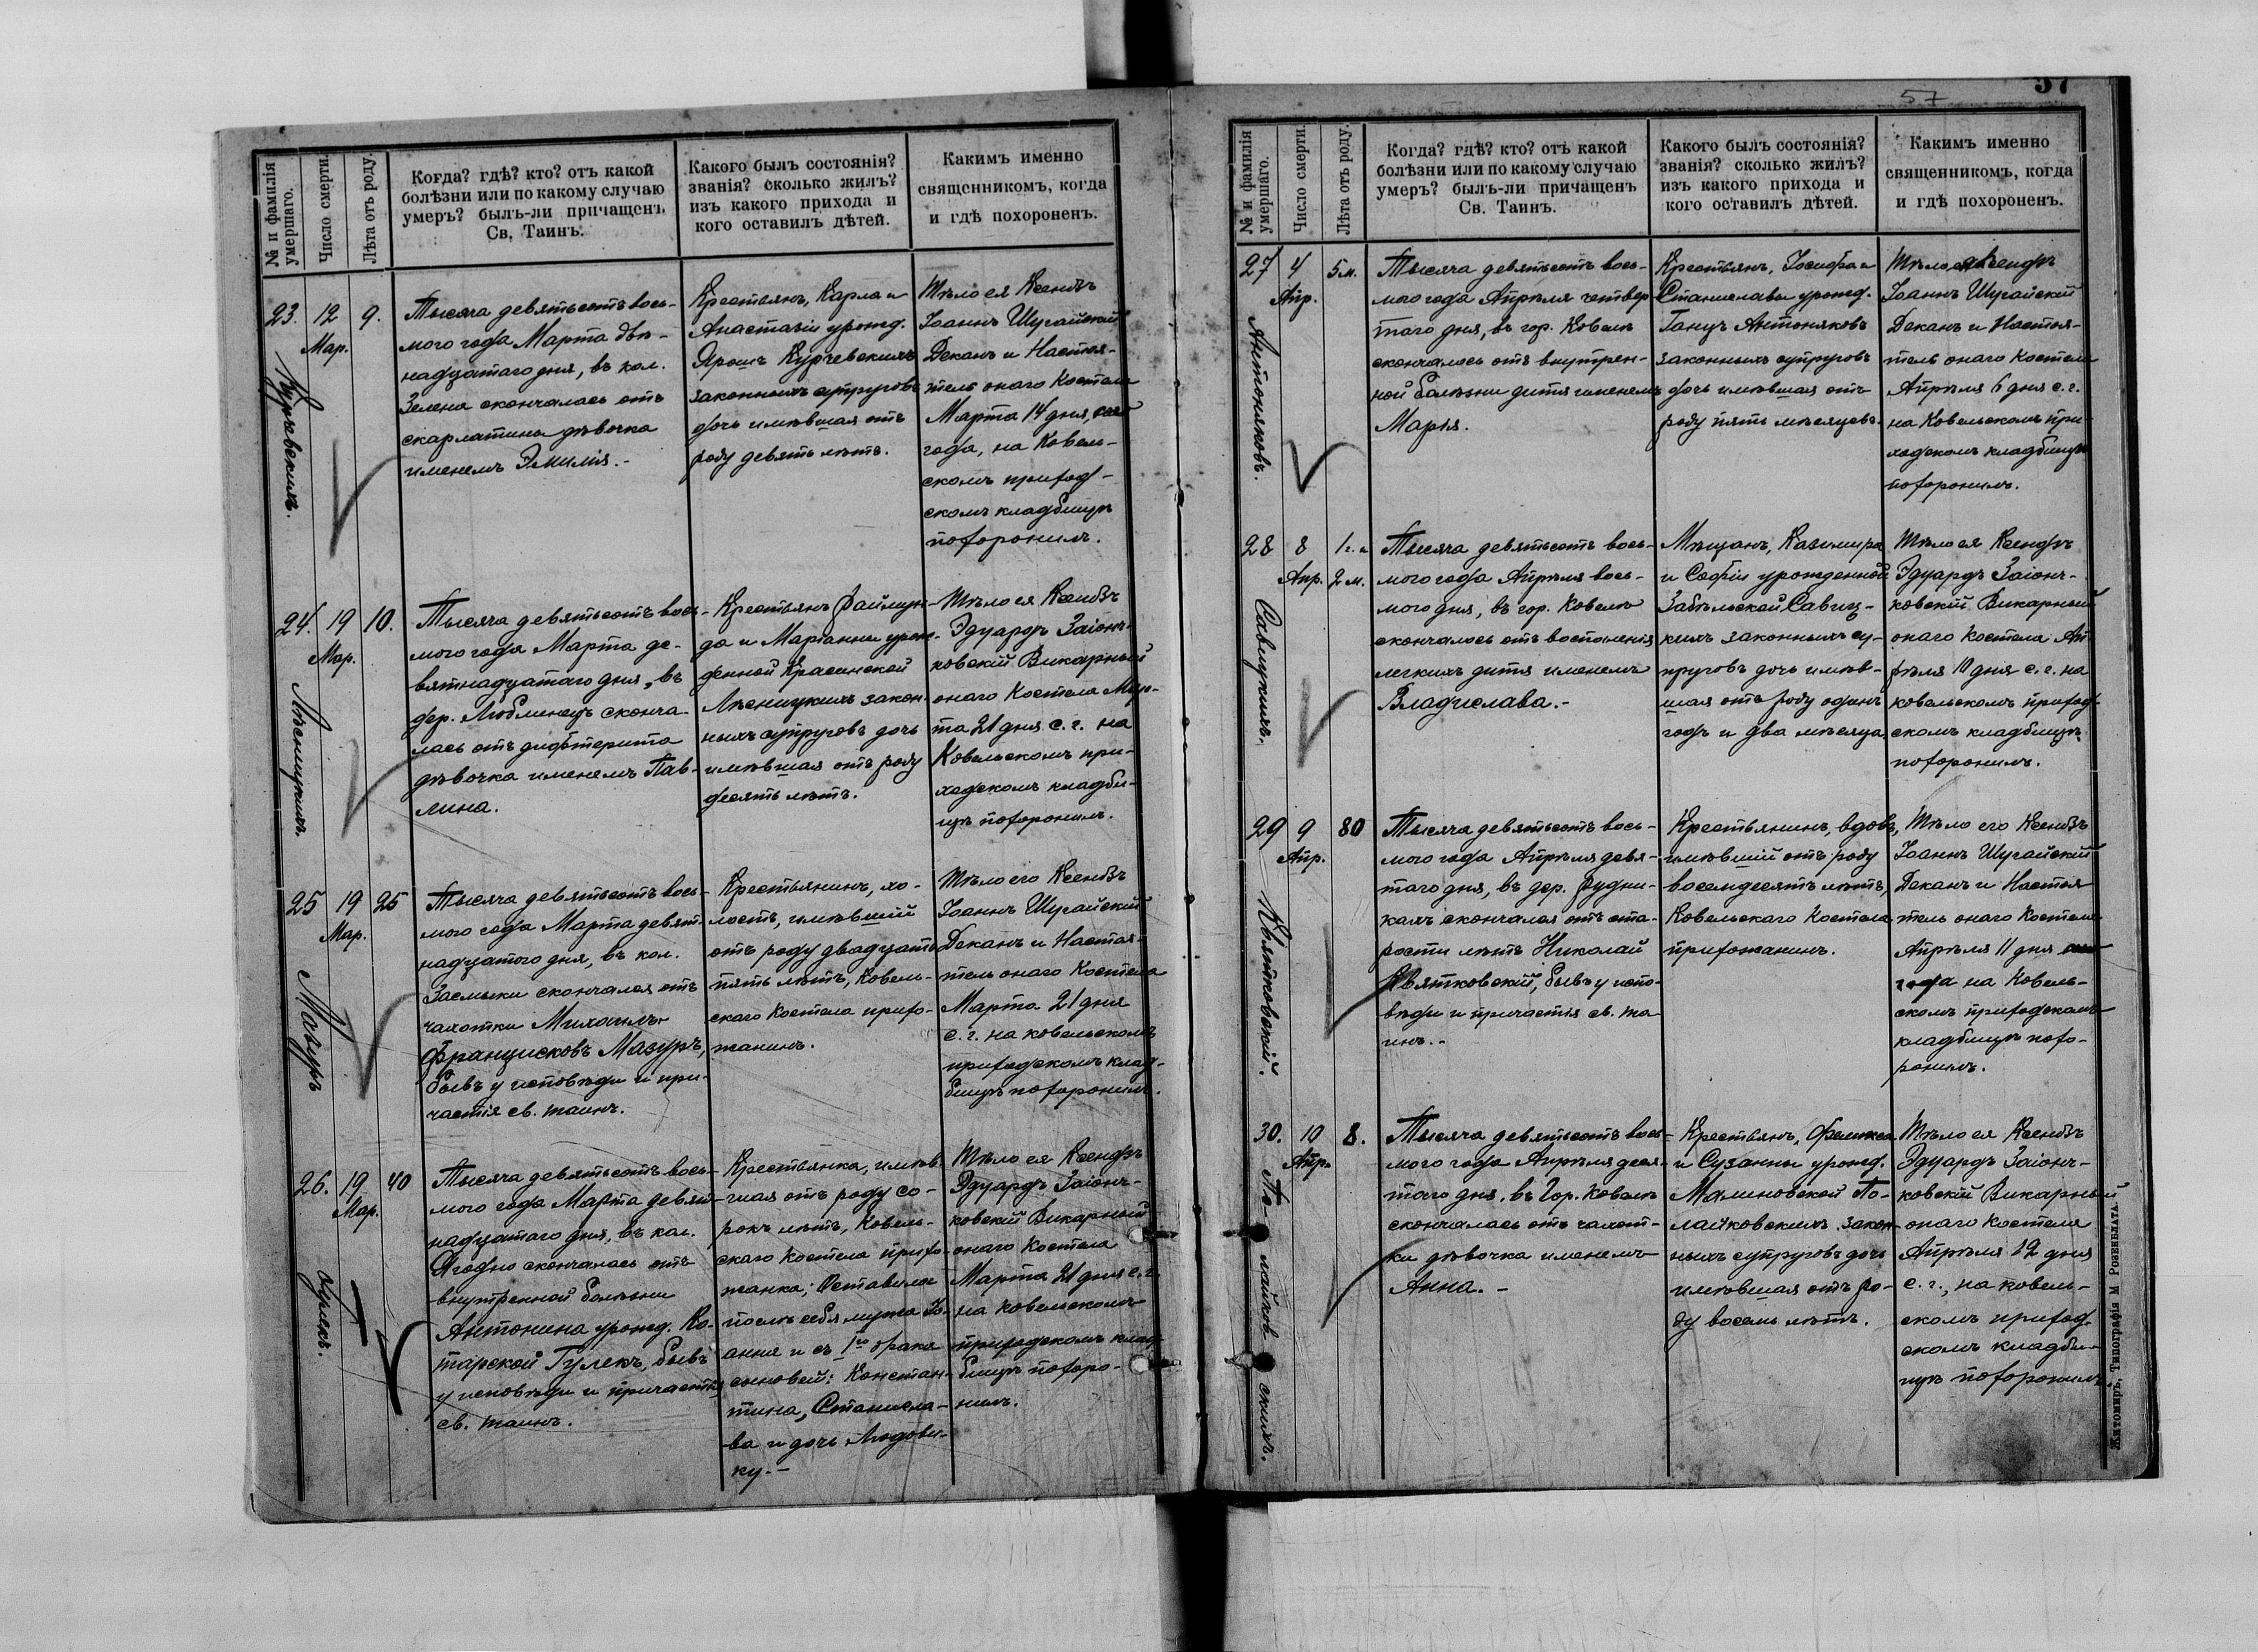 № и фамилія
умершаго.
Число смерти.
Лѣта отъ роду.
Когда? гдѣ? кто? отъ какой
болѣзни или по какому случаю
умеръ? былъ-ли причащенъ
Св. Таинъ.
Какого былъ состоянія?
званія? сколько жилъ?
изъ какого прихода и
кого оставилъ дѣтей.
Какимъ именно
священникомъ, когда
и гдѣ похороненъ.
23.
Курчевскихъ.
12
Мар.
9.
Тысяча девятьсотъ вось-
мого года Марта двѣ-
надцатаго дня, въ кол.
Зелена скончалась отъ
скарлатины дѣвочка
именемъ Эмилія.-
Крестьянъ, Карла и
Анастазіи урожд.
Ярошъ Курчевскихъ
законныхъ супруговъ
дочь имѣвшая отъ
роду девять лѣтъ.
Тѣло ея Ксендзъ
Іоаннъ Шугайскій
Деканъ и Настоя-
тель онаго Костела
Марта 14 дня, сего
года, на Ковель-
скомъ приход-
скомъ кладбищѣ
похоронилъ.
24.
Лѣсницкихъ.
19
Мар.
10.
Тысяча девятьсотъ вось-
мого года Марта де-
вятнадцатаго дня, въ
дер. Любленецъ сконча-
лась отъ дифтерита
дѣвочка именемъ Пав-
лина.
Крестьянъ Раймун-
да и Маріанны урож-
денной Красинской
Лѣсницкихъ закон-
ныхъ супруговъ дочь
имѣвшая отъ роду
десять лѣтъ.
Тѣло ея Ксендзъ
Эдуардъ Заіонч-
ковскій Викарный
онаго Костела Мар-
та 21 дня с. г. на
Ковельскомъ при-
ходскомъ кладби-
щѣ похоронилъ.
25
Мазуръ
19
Мар.
25
Тысяча девятьсотъ вось-
мого года Марта девят-
надцатого дня, въ кол.
Засмыки скончался отъ
чахотки Михаилъ
Францисковъ Мазуръ,
бывъ у исповѣди и при-
частія св. таинъ.
Крестьянинъ, хо-
лостъ, имѣвшій
отъ роду двадцать
пять лѣтъ, Ковель-
скаго Костела прихо-
жанинъ.
Тѣло его Ксендзъ
Іоаннъ Шугайскій
Деканъ и Настоя-
тель онаго Костела
Марта 21 дня
с. г. на ковельскомъ
приходскомъ клад-
бищѣ похоронилъ.
26.
19
Мар.
40
Тысяча девятьсотъ вось-
мого года Марта девят-
надцатаго дня, въ кол.
Ягодно скончалась отъ
внутренной болѣзни
Антонина урожд. Ко-
тарской Гулекъ, бывъ
у исповѣди и причастія
св. таинъ.
Крестьянка, имѣв-
шая отъ роду со-
рокъ лѣтъ, Ковель-
скаго Костела прихо-
жанка; Оставила
послѣ себя мужа Іо-
анна и съ 1го брака
сыновей: Констан-
тина, Станисла-
ва и дочь Людови-
ку.-
Тѣло ея Ксендзъ
Эдуардъ Заіонч-
ковскій Викарный
онаго Костела
Марта 21 дня с. г.
на ковельскомъ
приходскомъ клад-
бищѣ похоро-
нилъ.
57
57
№ и фамилія
умершаго.
Число смерти.
Лѣта отъ роду.
Когда? гдѣ? кто? отъ какой
болѣзни или по какому случаю
умеръ? былъ-ли причащенъ
Св. Таинъ.
Какого былъ состоянія?
званія? сколько жилъ?
изъ какого прихода и
кого оставилъ дѣтей.
Какимъ именно
священникомъ, когда
и гдѣ похороненъ.
27
Антоняковъ.
4
Апр.
5 м.
Тысяча девятьсотъ вось-
мого года Апрѣля четвер-
таго дня, въ гор. Ковелѣ
скончалось отъ внутрен-
ной болѣзни дитя именемъ
Марія.
Крестьянъ, Іосифа и
Станиславы урожд.
Ганцъ Антоняковъ
законныхъ супруговъ
дочь имѣвшая отъ
роду пять мѣсяцевъ.
Тѣло ея Ксендзъ
Іоаннъ Шугайскій
Деканъ и Настоя-
тель онаго Костела
Апрѣля 6 дня с. г.
на Ковельскомъ при-
ходскомъ кладбищѣ
похоронилъ.
28
Савицкихъ.
8
Апр.
1 г. и
2 м.
Тысяча девятьсотъ вось-
мого года Апрѣля вось-
мого дня, въ гор. Ковелѣ
скончалось отъ воспаленія
легкихъ дитя именемъ
Владислава.-
Мѣщанъ, Казимира
и Софіи урожденной
Забѣльской Савиц-
кихъ законныхъ су-
пруговъ дочь имѣв-
шая отъ роду одинъ
годъ и два мѣсяца
Тѣло ея Ксендзъ
Эдуардъ Заіонч-
ковскій Викарный
онаго Костела Ап-
рѣля 10 дня с. г. на
ковельскомъ приход-
скомъ кладбищѣ
похоронилъ.
29
Квятковскій.
9
Апр.
80
Тысяча девятьсотъ вось-
мого года Апрѣля девя-
таго дня, въ дер. Рудни-
кахъ скончался отъ ста-
рости лѣтъ Николай
Квятковскій, бывъ у испо-
вѣди и причастія св. та
инъ.-
Крестьянинъ, вдовъ,
имѣвшій отъ роду
восемьдесятъ лѣтъ,
Ковельскаго Костела
прихожанинъ.
Тѣло его Ксендзъ
Іоаннъ Шугайскій
Деканъ и Настоя
тель онаго Костела
Апрѣля 11 дня сего
года на Ковель-
скомъ приходскомъ
кладбищѣ похо-
ронилъ.
30.
По лайков скихъ.
10
Апр.
8.
Тысяча девятьсотъ вось-
мого года Апрѣля деся-
того дня, въ Гор. Ковелѣ
скончалась отъ чахот-
ки дѣвочка именемъ
Анна.-
Крестьянъ, Феликса
и Сузанны урожд.
Малиновской По-
лайковскихъ закон-
ныхъ супруговъ дочь
имѣвшая отъ ро-
ду восемь лѣтъ.
Тѣло ея Ксендзъ
Эдуардъ Заіонч-
ковскій Викарный
онаго Костела
Апрѣля 12 дня
с. г., на ковель-
скомъ приход-
скомъ кладби-
щѣ похоронилъ.
Житомиръ, Типографія М Розенблата.